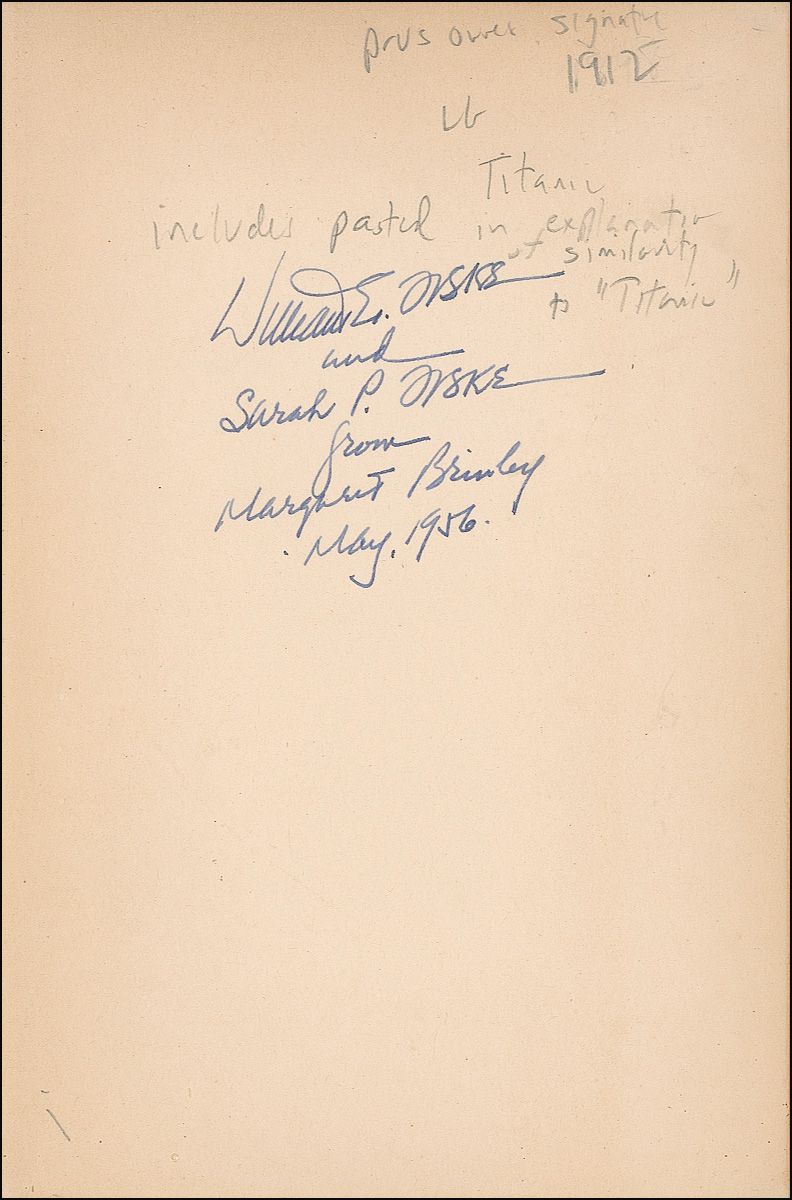 prvs owner signature
1912
VG
Titanic
includes pasted in explanation
of similarity
to "Titanic"
William E. FISKE
and
Sarah P. FISKE
from
Margaret Brinley
May, 1956.